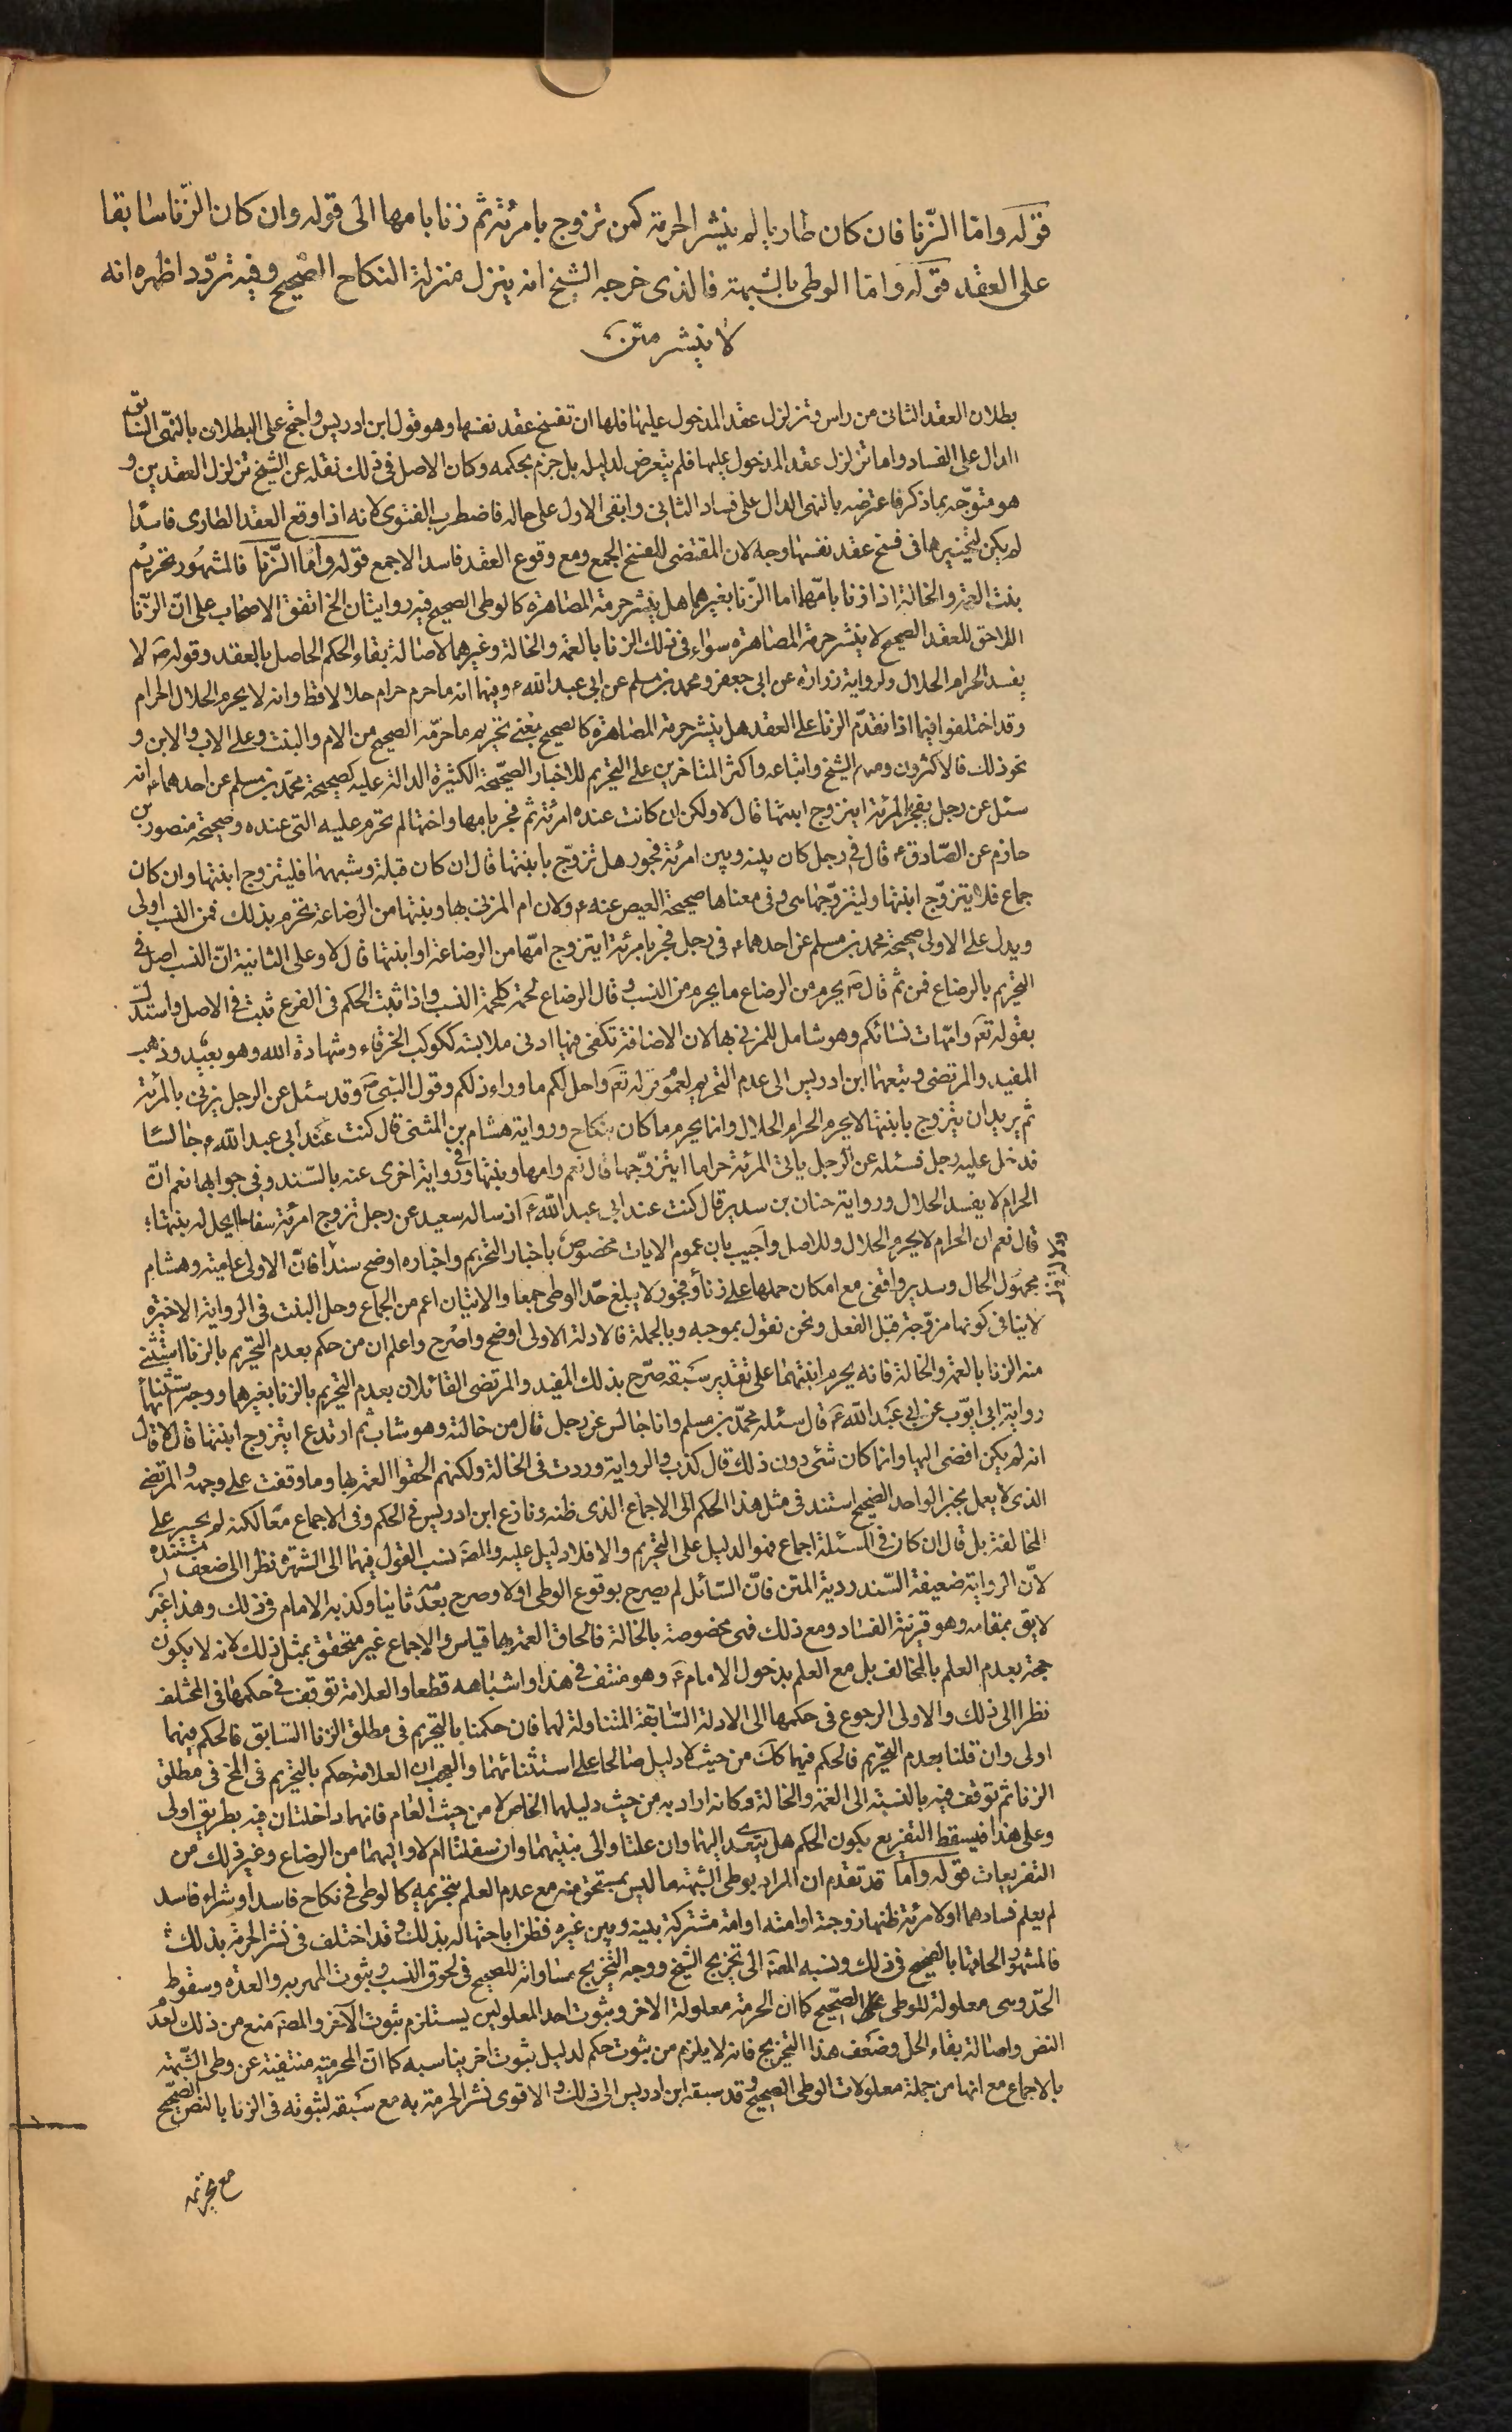 قوله واما الزّنا فان كان طاريا لم ينشر الحرمة كمن تزوج بامرئة ثم زنا بامها الى قوله وان كان الزّنا سابقا
على العقد قوله واما الوطى بالشبهة فالذى خرجه الشيخ انه ينزل منزلة النكاح الصّحيح وفيه تردّد اظهره انه
لا ينشر متن
بطلان العقد الثانى من راس وتزلزل عقد المدخول عليها فلها ان تفسخ عقد نفسها وهو قول ابن ادريس واحتج على البطلان بالنّهى السّابق
الدال على الفساد واما تزلزل عقد المدخول عليها فلم يتعرض لدليله بل جزم بحكمه وكان الاصل فى ذلك نقله عن الشيخ تزلزل العقدين و
هو متوجّه بما ذكر فاعترضه بالنهى الدال على فساد الثانى وابقى الاول على حاله فاضطرب الفتوى لانه اذا وقع العقد الطارى فاسدًا
لم يكن لتخييرها فى فسخ عقد نفسها وجه لان المقتضى للفسخ الجمع ومع وقوع العقد فاسدا لا جمع قوله وامّا الزّنا فالمشهور تحريم
بنت العمة والخالة اذا زنا بامّها اما الزّنا بغيرهما هل ينشر حرمة المصاهرة كالوطى الصحيح فيه روايتان الخ اتفق الاصحاب على انّ الزّنا
اللاحق للعقد الصحيح لا ينشر حرمة المصاهرة سواء فى ذلك الزنا بالعمة والخالة وغيرهما لاصالة بقاء الحكم الحاصل بالعقد وقوله ص لا
يفسد الحرام الحلال ولرواية زرارة عن ابى جعفر ومحمد بن مسلم عن ابى عبد الله ع وفيهما انه ما حرم حرام حلالا قط وانه لا يحرم الحلال الحرام
وقد اختلفوا فيما اذا تقدّم الزنا على العقد هل ينشر حرمة المصاهرة كالصحيح بمعنى تحريم ما حرّمه الصحيح من الام والبنت وعلى الاب والابن و
نحو ذلك فالاكثرون ومنهم الشيخ واتباعه واكثر المتاخرين على التحريم للاخبار الصّحيحة الكثيرة الدالة عليه كصحيحة محمّد بن مسلم عن احدهما ع انه
سئل عن رجل يفجر بالمرئة ايتزوج ابنتها قال لا ولكن ان كانت عنده امرئة ثم فجر بامها واختها لم تحرم عليه التى عنده وصحيحة منصور بن
حازم عن الصّادق ع قال فى رجل كان بينه وبين امرئة فجور هل تزوّج بابنتها قال ان كان قبلة وشبهها فليتزوج ابنتها وان كان
جماع فلا يتزوّج ابنتها وليتزوّجها هى وفى معناها صحيحة العيص عنه ع ولان ام المزنى بها وبنتها من الرضاعة تحرم بذلك فمن النسب اولى
ويدل على الاولى صحيحة محمد بن مسلم عن احدهما ع فى رجل فجر بامرئة ايتزوج امّها من الرضاعة او ابنتها قال لا وعلى الثانية انّ النسب اصل فى
التحريم بالرضاع فمن ثم قال ص يحرم من الرضاع ما يحرم من النسب وقال الرضاع لحمة كلحمة النسب واذا ثبت الحكم فى الفرع ثبت فى الاصل واستدل
بقوله تعم وامّهات نسائكم وهو شامل للمزنى بها لان الاضافة تكفى فيها ادنى ملابسة ككوكب الخرقاء وشهادة الله وهو بعيد وذهب
المفيد والمرتضى وتبعهما ابن ادريس الى عدم التحريم لعموم قوله تعم واحل لكم ما وراء ذلكم وقول النبى ص وقد سئل عن الرجل يزنى بالمرئة
ثم يريد ان يتزوج بابنتها لا يحرم الحرام الحلال وانما يحرم ما كان بنكاح ورواية هشام بن المثنى قال كنت عند ابى عبد الله ع جالسًا
فدخل عليه رجل فسئله عن الرجل ياتى المرئة حراما ايتزوّجها قال نعم وامها وبنتها وفى رواية اخرى عنه بالسّند وفى جوابها نعم انّ
الحرام لا يفسد الحلال ورواية حنان بن سدير قال كنت عند ابى عبد الله ع اذ ساله سعيد عن رجل تزوج امرئة سفاحا ايحل له بنتها
قال نعم ان الحرام لا يحرم الحلال وللاصل واجيب بان عموم الايات مخصوص باخبار التحريم واخباره اوضح سندا فانّ الاولى عامية وهشام
مجهول الحال وسدير واقفى مع امكان حملها على زنا وفجور لا يبلغ حّد الوطى جمعا والاتيان اعم من الجماع وحل البنت فى الرواية الاخيرة
لا ينافى كونها مزوّجة قبل الفعل ونحن نقول بموجبه وبالجملة فالادلة الاولى اوضح واصرح واعلم ان من حكم بعدم التحريم بالزنا استثنى
منه الزنا بالعمة والخالة فانه يحرم ابنتهما على تقدير سبقه صرّح بذلك المفيد والمرتضى القائلان بعدم التحريم بالزنا بغيرهما ووجه استثنائها
رواية ابى ايّوب عن ابى عبد الله ع قال سئله محمّد بن مسلم وانا جالس عن رجل قال من خالته وهو شاب ثم ارتدع ايتزوج ابنتها قال لا قال
انه لم يكن افضى اليها وانما كان شئ دون ذلك قال كذب والرواية وردت فى الخالة ولكنهم الحقوا العمة بها وما وقفت على وجهه والمرتضى
الذى لا يعمل بخبر الواحد الصّحيح استند فى مثل هذا الحكم الى الاجماع الذى ظنه ونازع ابن ادريس فى الحكم وفى الاجماع معًا لكنه لم يجسر على
المخالفة بل قال ان كان فى المسئلة اجماع فهو الدليل على التحريم والا فلا دليل عليه والمص نسب القول فيهما الى الشهرة نظرا الى ضعف مستنده
لانّ الرواية ضعيفة السّند ردية المتن فانّ السّائل لم يصرح بوقوع الوطى اولا وصرح بعدمه ثانيا وكذبه الامام فى ذلك وهذا غير
لايق بمقامه وهو قرينة الفساد ومع ذلك فهى مخصوصة بالخالة فالحاق العمة بها قياس والاجماع غير متحقق بمثل ذلك لانه لا يكون
حجة بعدم العلم بالمخالف بل مع العلم بدخول الامام ع وهو منتف فى هذا واشتباهه قطعا والعلامة توقف فى حكمها فى المختلف
نظرا الى ذلك والاولى الرجوع فى حكمها الى الادلة السّابقة المتناولة لهما فان حكمنا بالتحريم فى مطلق الزنا السّابق فالحكم فيهما
اولى وان قلنا بعدم التحريم فالحكم فيهما كك من حيث لا دليل صالحا على استثنائهما والعجب ان العلامة حكم بالتحريم فى المخ فى مطلق
الزنا ثم توقف فيه بالنسبة الى العمة والخالة وكانه اراد به من حيث دليلهما الخاص لا من حيث العام فانهما داخلتان فيه بطريق اولى
وعلى هذا فيسقط التفريع بكون الحكم هل يتعدى اليهما وان علتا والى بنتيهما وان سفلتا ام لا والهما من الرضاع وغير ذلك من
التفريعات قوله واما قد تقدم ان المراد بوطى الشبهة ما ليس بمستحق منه مع عدم العلم بتحريمه كالوطى فى نكاح فاسد او شراء فاسد
لم يعلم فسادهما او لامرئة ظنها زوجة او امته او امة مشتركة بينه وبين غيره فظن اباحتها له بذلك وقد اختلف فى نشر الحرمة بذلك
فالمشهور الحاقها بالصّحيح فى ذلك ونسبه المص الى تخريج الشيخ ووجه التّخريج مساواته للصحيح فى لحوق النسب وثبوت المهر به والعدة وسقوط
الحّد وهى معلولة للوطى الصّحيح كما ان الحرمة معلولة الاخر وثبوت احد المعلولين يستلزم ثبوت الآخر والمص منع من ذلك لعدم
النص واصالة بقاء الحل وضعف هذا التخريج فانه لا يلزم من ثبوت حكم لدليل ثبوت اخر يناسبه كما انّ المحرمية منتفية عن وطى الشّبهة
بالاجماع مع انها من جملة معلولات الوطى الصحيح وقد سبقه ابن ادريس الى ذلك والاقوى نشر الحرمة به مع سبقه لثبوته فى الزنا بالنص الصّحيح
مع تحريمه